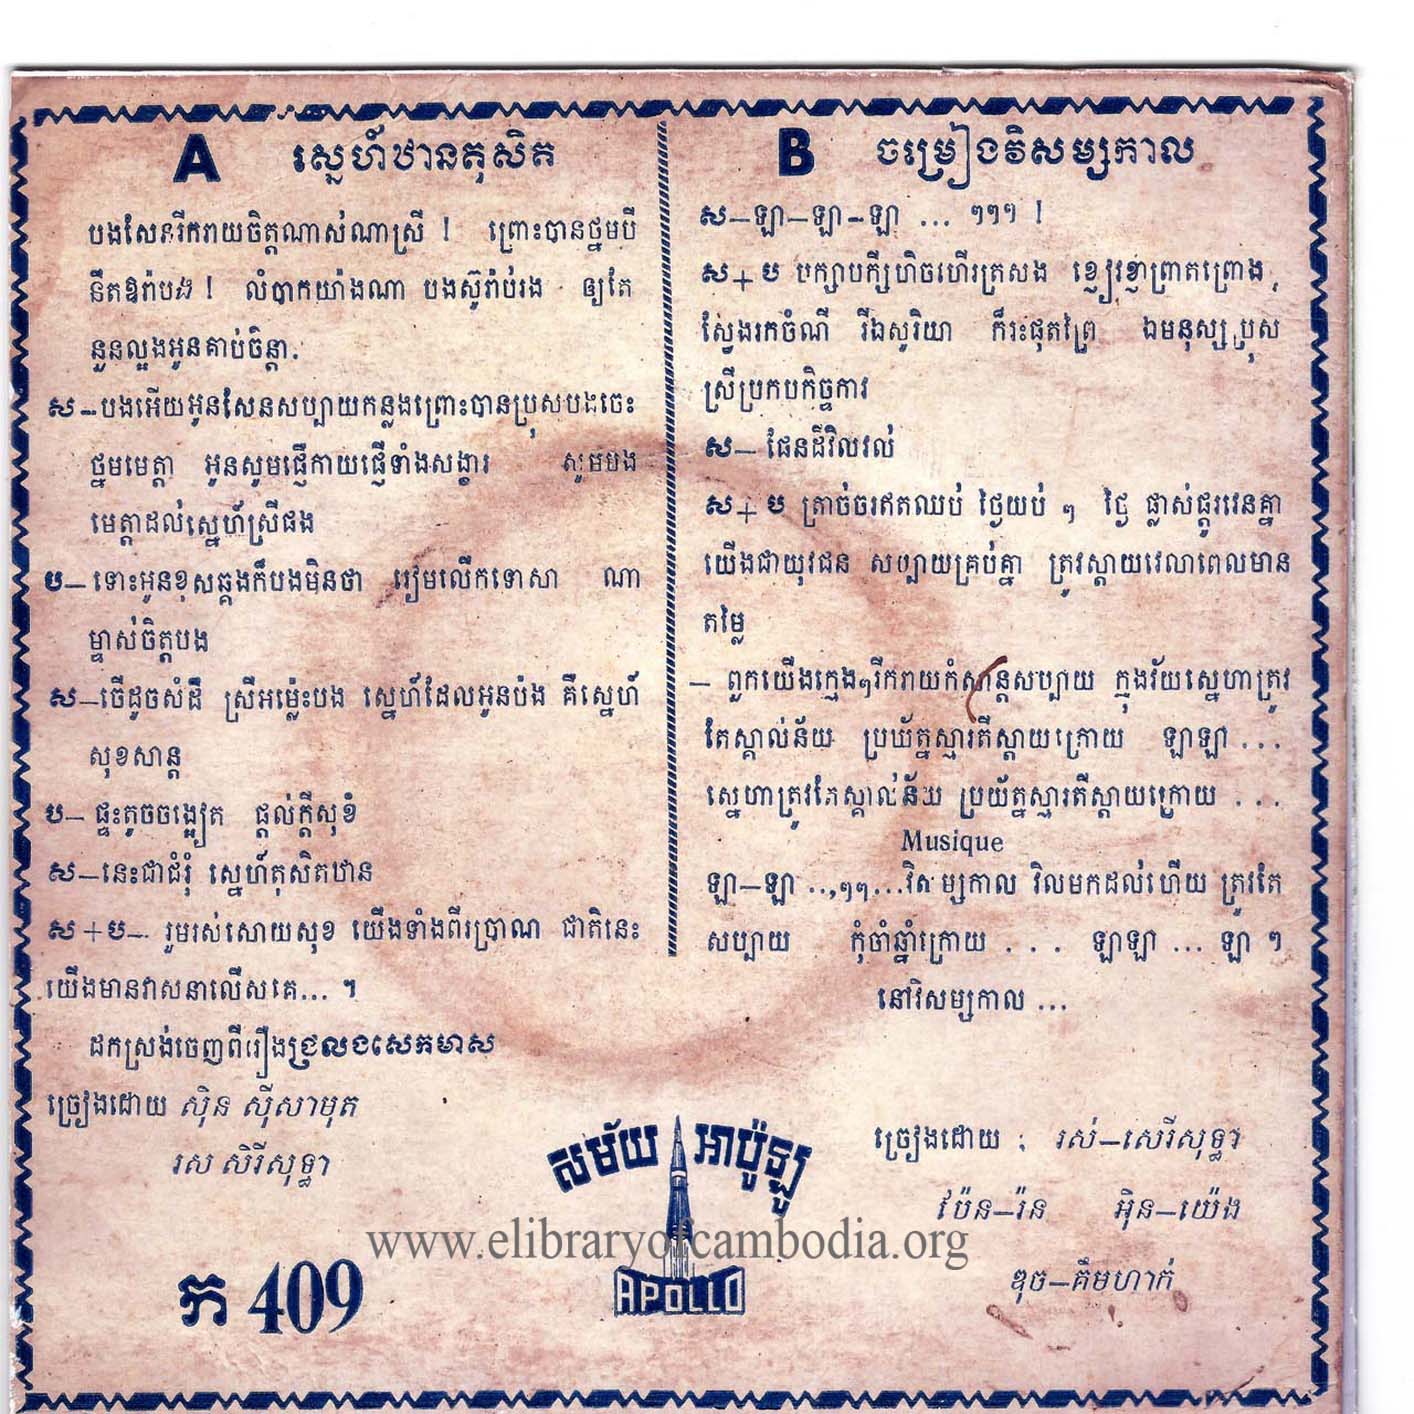 A ស្នេហ៍ឋានតុសិត
បងសែនរីករាយចិត្តណាស់ណាស្រី ! ព្រោះបានថ្នមបី
នឹតឱរ៉ាបង ! លំបាកយ៉ាងណា បងស៊ូរ៉ាប់រង ឲ្យតែ
នួនល្អងអូនគាប់ចិន្តា.
ស–បងអើយអូនសែនសប្បាយកន្លងព្រោះបានប្រុសបងចេះ
ថ្នមមេត្តា អូនសូមផ្ញើកាយផ្ញើទាំងសង្ខារ សូមបង
មេត្តាដល់ស្នេហ៍ស្រីផង
ប–ទោះអូនខុសឆ្គងក៏បងមិនថា រៀមលើកទោសា ណា
ម្ចាស់ចិត្តបង
ស–ចើដូចសំដី ស្រីអម្ល៉េះបង ស្នេហ៍ដែលអូនប៉ង គឺស្នេហ៍
សុខសាន្ត
ប–ផ្ទះតូចចង្អៀត ផ្តល់ក្តីសុខំ
ស–នេះជាជំរុំ ស្នេហ៍តុសិតឋាន
ស+ប– រួមរស់សោយសុខ យើងទាំងពីរប្រាណ ជាតិនេះ
យើងមានវាសនាលើសគេ... ។
ដកស្រង់ចេញពីរឿងជ្រលងសេកមាស
ច្រៀងដោយ ស៊ិន ស៊ីសាមុត
រស សិរីសុទ្ធា
ក 409
B ចម្រៀងវិសម្សកាល
ស–ឡា–ឡា–ឡា ... ៗៗៗ !
ស+ប បក្សាបក្សីហិចហើរត្រសង ខ្ញៀវខ្ញាព្រាតព្រោង,
ស្វែងរកចំណី រីឯសូរិយា ក៏រះផុតព្រៃ ឯមនុស្សប្រុស
ស្រីប្រកបកិច្ចការ
ស– ផែនដីវិលវល់
ស+ប ត្រាច់ចរឥតឈប់ ថ្ងៃយប់ ៗ ថ្ងៃ ផ្លាស់ផ្តូរវេនគ្នា
យើងជាយុវជន សប្បាយគ្រប់គ្នា ត្រូវស្តាយវេលាពេលមាន
តម្លៃ
– ពួកយើងក្មេងៗរីករាយកំសាន្តសប្បាយ ក្នុងវ័យស្នេហាត្រូវ
តែស្គាល់ន័យ ប្រយ័ត្នស្មារតីស្តាយក្រោយ ឡាឡា ...
ស្នេហាត្រូវតែស្គាល់ន័យ ប្រយ័ត្នស្មារតីស្តាយក្រោយ ...
Musique
ឡា–ឡា ..,ៗៗ...វិសម្សកាល វិលមកដល់ហើយ ត្រូវតែ
សប្បាយ កុំចាំឆ្នាំក្រោយ . . . ឡាឡា ... ឡា ៗ
នៅវិសម្សកាល ...
ច្រៀងដោយ : រស់–សេរីសុទ្ធា
ប៉ែន–រ៉ន អ៊ិន–យ៉េង
ឌុច–គឹមហាក់
សម័យ អាប៉ូឡូ
APOLLO
www.elibraryofcambodia.org